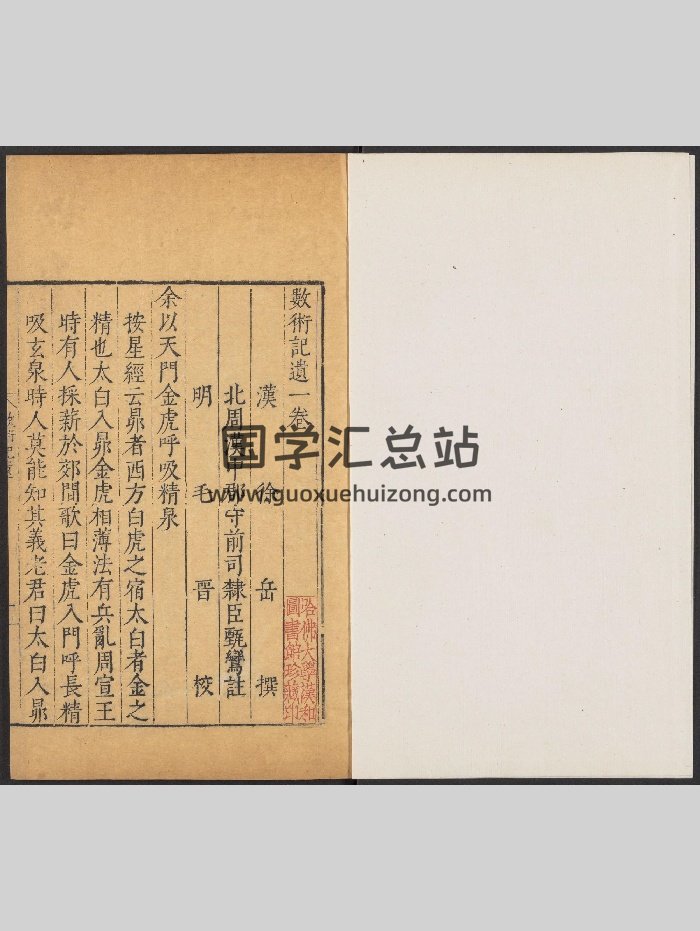 數術記遺一卷
漢 徐 岳 撰
北周漢中郡守前司隸臣甄鸞註
明 毛 晉 校
余以天門金虎呼吸精泉
按星經云昴者西方白虎之宿太白者金之
精也太白入昴金虎相薄法有兵亂周宣王
時有人採薪於郊間歌曰金虎入門呼長精
吸玄泉時人莫能知其義老君曰太白入昴
哈佛大學漢和
圖書館珍藏印
国学汇总站
www.guoxuehuizong.com